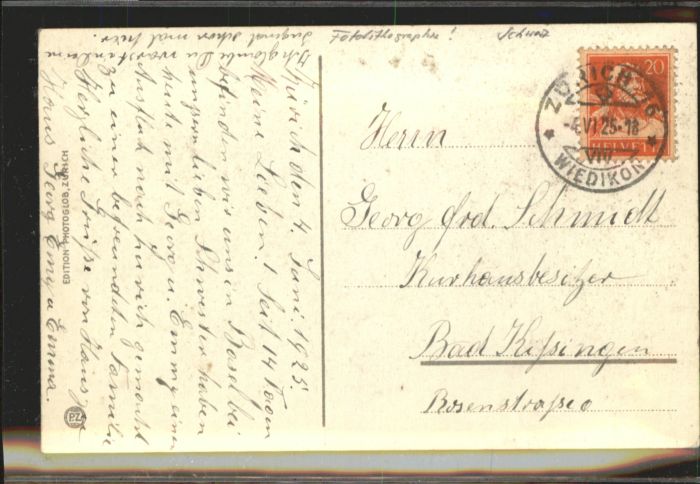 Zürich den 4. Juni 1925.
Meine Lieben! Seit 14 Tagen
befinden wir uns in Basel bei
unsern lieben Schwester haben
heute mit Georg u. Emmy einen
Ausflug nach Zürich gemacht
zu einer befreundeten Familie
Herzliche Grüße von Hans
Hans Georg Emmy u Emma.
Ich glaube Du warst
schon mal hier.
EDITION PHOTOGLOB, ZÜRICH
PZ
Schweiz
20
HELVETIA
ZÜRICH 6
-4.VI.25-18
VIII
WIEDIKON
Herrn
Georg Ord. Schmidt
Kurhausbesitzer
Bad Kissingen
Rosenstraße